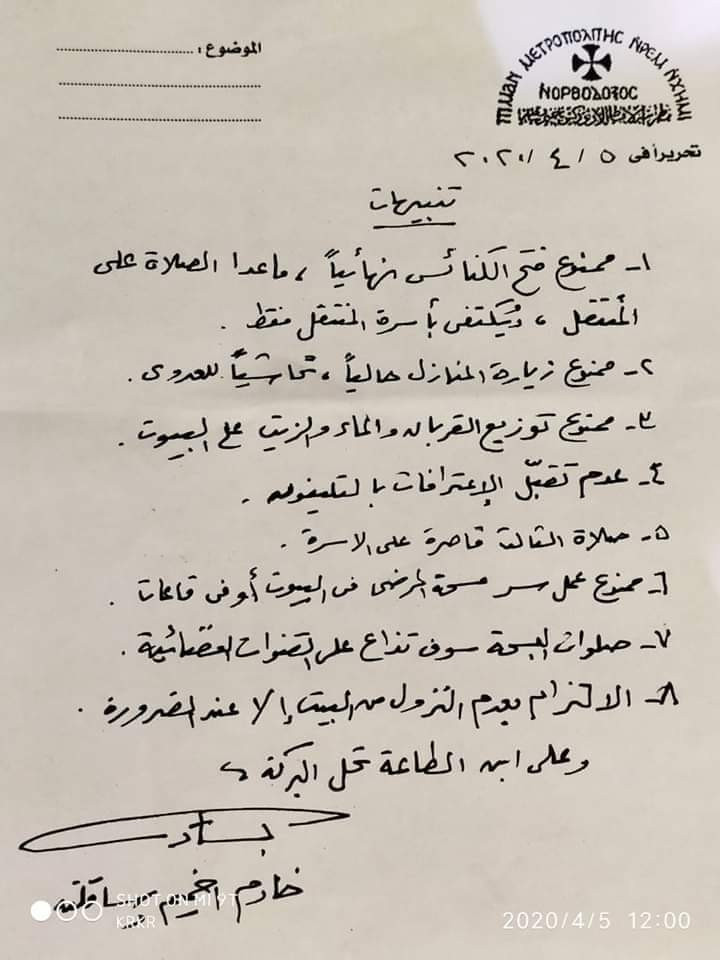 ⲠⲒⲘⲀⲚ ⲘⲈⲦⲢⲞⲠⲞⲖⲒⲦⲎⲤ ⲚⲢⲈⲘ ⲚⲬⲎⲘⲒ
ⲚⲞⲢⲐⲞⲆⲞⲜⲞⲤ
الموضوع :
تحريراً فى ٥ / ٤ / ٢٠٢٠
تنبيهات
١- ممنوع فتح الكنائس نهائياً ، ماعدا الصلاة على
المُنتقل ، ويُكتفى بأسرة المنتقل فقط .
٢- ممنوع زيارة المنازل حالياً ، تحاشياً للعدوى .
٣- ممنوع توزيع القربان والماء والزيت على البيوت .
٤- عدم تقبّل الإعترافات بالتليفون .
٥- صلاة الثالث قاصرة على الاسرة .
٦- ممنوع عمل سر مسحة المرضى فى البيوت أو فى قاعات .
٧- صلوات البسخة سوف تذاع على القنوات الفضائية .
٨- الالتزام بعدم النزول من البيت إلا عند الضرورة .
وعلى ابن الطاعة تحل البركة
خادم اخميم وساقلته
SHOT ON MI 9T
KRKR
2020/4/5 12:00